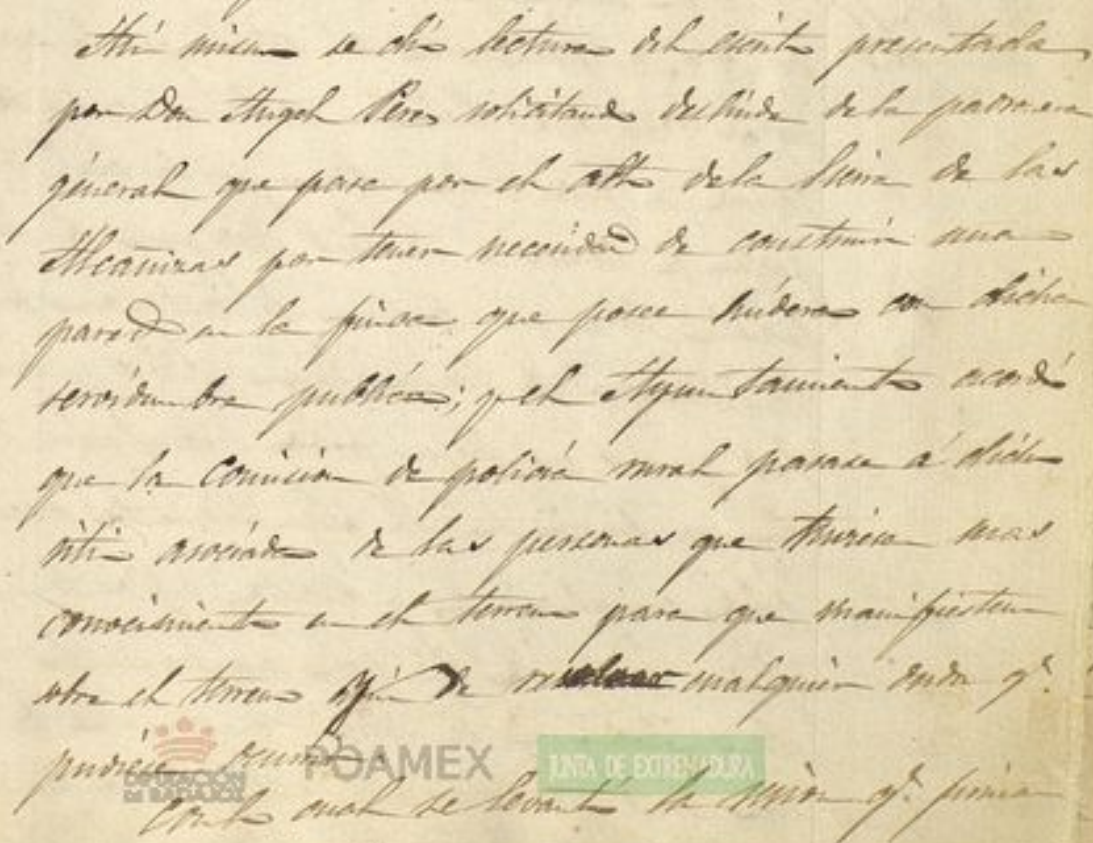 Asi mismo se dió lectura del escrito presentado
por Don Angel Perez solicitando deslinde de la
general que pasa por el alto de la Sierra de las
Alcañizas por tener necesidad de construir una
pared en la finca que posee lindera con dicha
servidumbre publica; y el Ayuntamiento acordó
que la Comision de policia rural pasase á dicho
sitio asociada de las personas que tuviesen mas
conocimiento en el terreno para que manifiesten
sobre el terreno afin de cualquier duda q.e
pudiese ocurrir.
DIPUTACIÓN DE BADAJOZ POAMEX JUNTA DE EXTREMADURA
Con lo cual se levantó la sesion q.e firman